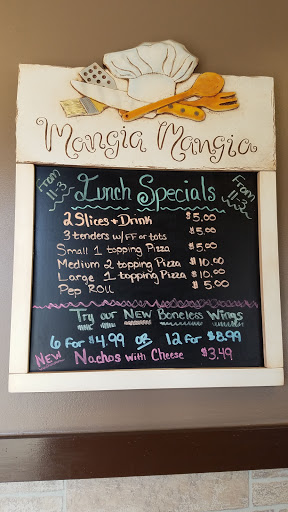 Mongia Mangia
From 11-3
Lunch Specials
From 11-3
2 Slices + Drink $5.00
3 tenders w/FF or tots $5.00
Small 1 topping Pizza $5.00
Medium 2 topping Pizza $10.00
Large 1 topping Pizza $10.00
Pep Roll $5.00
Try our New Boneless Wings
6 For $4.99 OR 12 For $8.99
New Nachos with Cheese $3.49